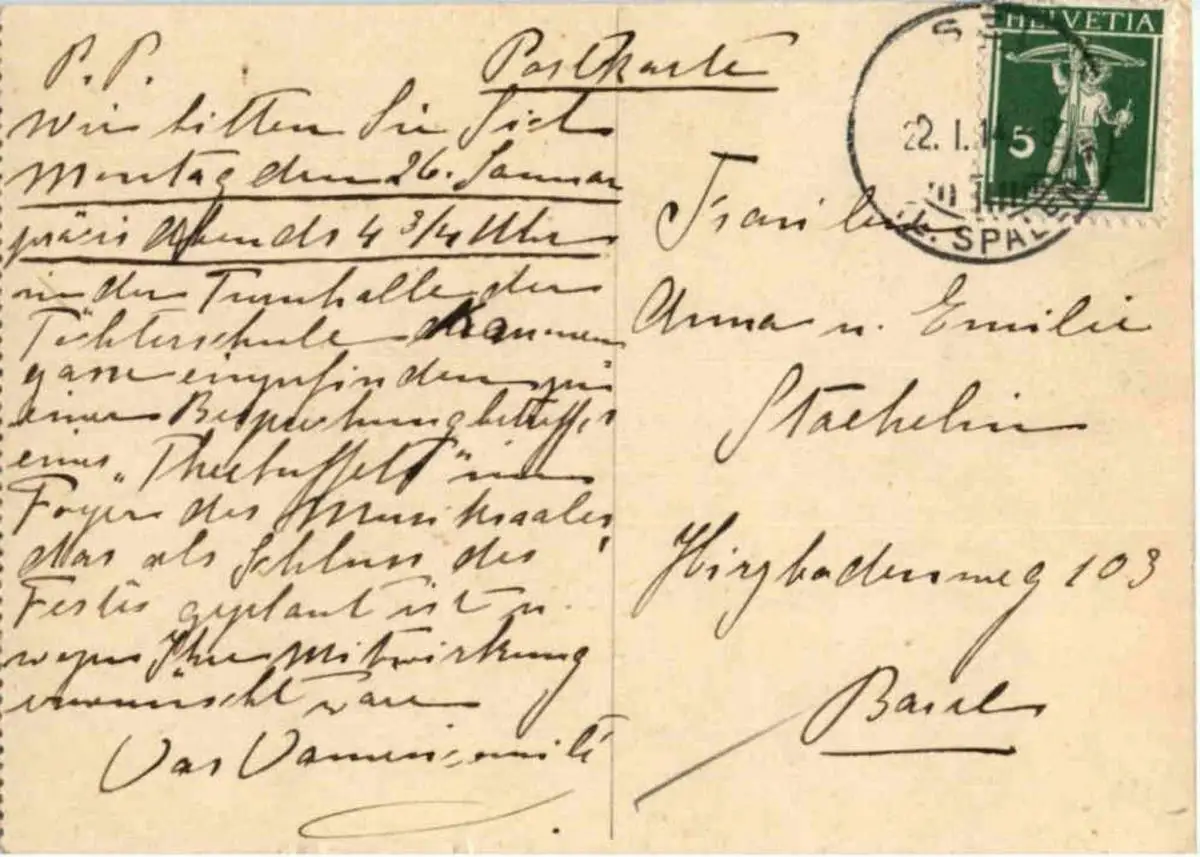 P. P.
Wir bitten Sie Sich
Montag den 26. Januar
präcis Abends 4 3/4 Uhr
in der Turnhalle der
Töchterschule Kanonen
gasse einzufinden zu
einer Besprechung betreffs
eines „Theebuffets" im
Foyer des Musiksaales,
das als Schluss des
Festes geplant ist u.
wozu Ihre Mitwirkung
erwünscht wäre
Das Damencomité
Postkarte
HELVETIA
5
22. I. 14
SPALEN
Fräulein
Anna u. Emilie
Staehelin
Hirzbodenweg 103
Basel